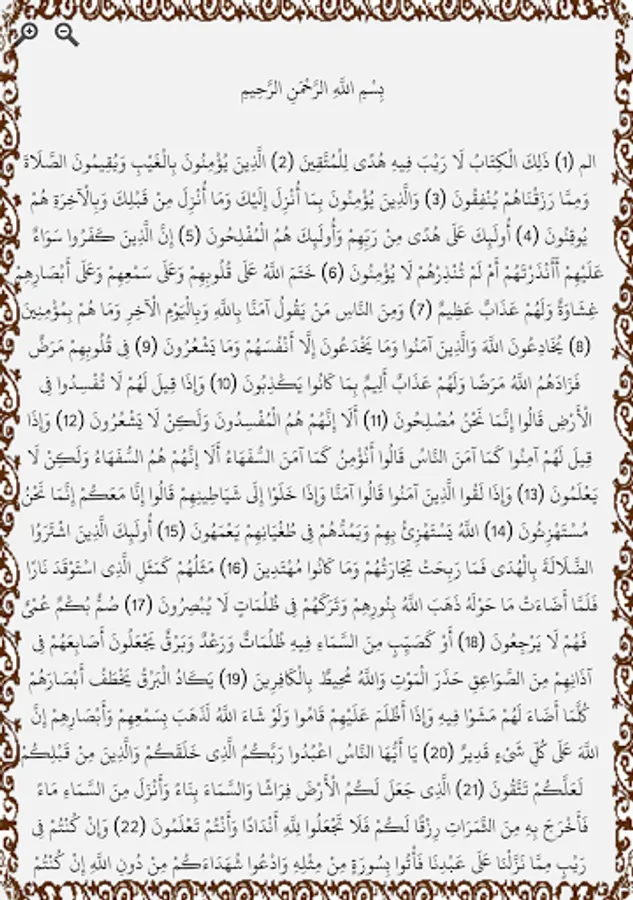 بِسْمِ اللَّهِ الرَّحْمَنِ الرَّحِيمِ
الم (1) ذَلِكَ الْكِتَابُ لَا رَيْبَ فِيهِ هُدًى لِلْمُتَّقِينَ (2) الَّذِينَ يُؤْمِنُونَ بِالْغَيْبِ وَيُقِيمُونَ الصَّلَاةَ
وَمِمَّا رَزَقْنَاهُمْ يُنْفِقُونَ (3) وَالَّذِينَ يُؤْمِنُونَ بِمَا أُنْزِلَ إِلَيْكَ وَمَا أُنْزِلَ مِنْ قَبْلِكَ وَبِالْآخِرَةِ هُمْ
يُوقِنُونَ (4) أُولَئِكَ عَلَى هُدًى مِنْ رَبِّهِمْ وَأُولَئِكَ هُمُ الْمُفْلِحُونَ (5) إِنَّ الَّذِينَ كَفَرُوا سَوَاءٌ
عَلَيْهِمْ أَأَنْذَرْتَهُمْ أَمْ لَمْ تُنْذِرْهُمْ لَا يُؤْمِنُونَ (6) خَتَمَ اللَّهُ عَلَى قُلُوبِهِمْ وَعَلَى سَمْعِهِمْ وَعَلَى أَبْصَارِهِمْ
غِشَاوَةٌ وَلَهُمْ عَذَابٌ عَظِيمٌ (7) وَمِنَ النَّاسِ مَنْ يَقُولُ آمَنَّا بِاللَّهِ وَبِالْيَوْمِ الْآخِرِ وَمَا هُمْ بِمُؤْمِنِينَ
(8) يُخَادِعُونَ اللَّهَ وَالَّذِينَ آمَنُوا وَمَا يَخْدَعُونَ إِلَّا أَنْفُسَهُمْ وَمَا يَشْعُرُونَ (9) فِي قُلُوبِهِمْ مَرَضٌ
فَزَادَهُمُ اللَّهُ مَرَضًا وَلَهُمْ عَذَابٌ أَلِيمٌ بِمَا كَانُوا يَكْذِبُونَ (10) وَإِذَا قِيلَ لَهُمْ لَا تُفْسِدُوا فِي
الْأَرْضِ قَالُوا إِنَّمَا نَحْنُ مُصْلِحُونَ (11) أَلَا إِنَّهُمْ هُمُ الْمُفْسِدُونَ وَلَكِنْ لَا يَشْعُرُونَ (12) وَإِذَا
قِيلَ لَهُمْ آمِنُوا كَمَا آمَنَ النَّاسُ قَالُوا أَنُؤْمِنُ كَمَا آمَنَ السُّفَهَاءُ أَلَا إِنَّهُمْ هُمُ السُّفَهَاءُ وَلَكِنْ لَا
يَعْلَمُونَ (13) وَإِذَا لَقُوا الَّذِينَ آمَنُوا قَالُوا آمَنَّا وَإِذَا خَلَوْا إِلَى شَيَاطِينِهِمْ قَالُوا إِنَّا مَعَكُمْ إِنَّمَا نَحْنُ
مُسْتَهْزِئُونَ (14) اللَّهُ يَسْتَهْزِئُ بِهِمْ وَيَمُدُّهُمْ فِي طُغْيَانِهِمْ يَعْمَهُونَ (15) أُولَئِكَ الَّذِينَ اشْتَرَوُا
الضَّلَالَةَ بِالْهُدَى فَمَا رَبِحَتْ تِجَارَتُهُمْ وَمَا كَانُوا مُهْتَدِينَ (16) مَثَلُهُمْ كَمَثَلِ الَّذِي اسْتَوْقَدَ نَارًا
فَلَمَّا أَضَاءَتْ مَا حَوْلَهُ ذَهَبَ اللَّهُ بِنُورِهِمْ وَتَرَكَهُمْ فِي ظُلُمَاتٍ لَا يُبْصِرُونَ (17) صُمٌّ بُكْمٌ عُمْيٌ
فَهُمْ لَا يَرْجِعُونَ (18) أَوْ كَصَيِّبٍ مِنَ السَّمَاءِ فِيهِ ظُلُمَاتٌ وَرَعْدٌ وَبَرْقٌ يَجْعَلُونَ أَصَابِعَهُمْ فِي
آذَانِهِمْ مِنَ الصَّوَاعِقِ حَذَرَ الْمَوْتِ وَاللَّهُ مُحِيطٌ بِالْكَافِرِينَ (19) يَكَادُ الْبَرْقُ يَخْطَفُ أَبْصَارَهُمْ
كُلَّمَا أَضَاءَ لَهُمْ مَشَوْا فِيهِ وَإِذَا أَظْلَمَ عَلَيْهِمْ قَامُوا وَلَوْ شَاءَ اللَّهُ لَذَهَبَ بِسَمْعِهِمْ وَأَبْصَارِهِمْ إِنَّ
اللَّهَ عَلَى كُلِّ شَيْءٍ قَدِيرٌ (20) يَا أَيُّهَا النَّاسُ اعْبُدُوا رَبَّكُمُ الَّذِي خَلَقَكُمْ وَالَّذِينَ مِنْ قَبْلِكُمْ
لَعَلَّكُمْ تَتَّقُونَ (21) الَّذِي جَعَلَ لَكُمُ الْأَرْضَ فِرَاشًا وَالسَّمَاءَ بِنَاءً وَأَنْزَلَ مِنَ السَّمَاءِ مَاءً
فَأَخْرَجَ بِهِ مِنَ الثَّمَرَاتِ رِزْقًا لَكُمْ فَلَا تَجْعَلُوا لِلَّهِ أَنْدَادًا وَأَنْتُمْ تَعْلَمُونَ (22) وَإِنْ كُنْتُمْ فِي
رَيْبٍ مِمَّا نَزَّلْنَا عَلَى عَبْدِنَا فَأْتُوا بِسُورَةٍ مِنْ مِثْلِهِ وَادْعُوا شُهَدَاءَكُمْ مِنْ دُونِ اللَّهِ إِنْ كُنْتُمْ